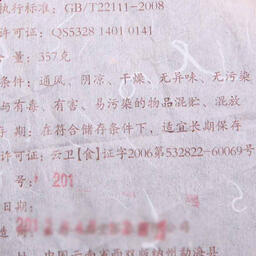 执行标准：GB/T22111-2008
许可证：QS5328 1401 0141
含量：357克
条件：通风、阴凉、干燥、无异味、无污染
与有毒、有害、易污染的物品混贮、混放
存期：在符合储存条件下，适宜长期保存
许可证：云卫【食】证字2006第532822-60069号
号：201
日期：
造
址 中国云南省西双版纳州勐海县